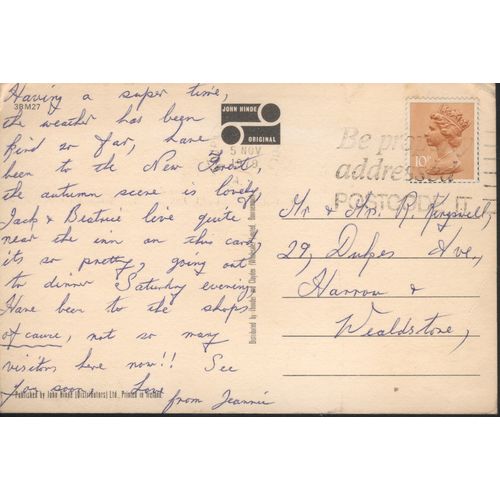 Having a super time,
3BM27
the weather has been
kind so far, have
been to the New Forest,
the autumn scene is lovely
Jack & Beatrice live quite
near the inn on this card,
its so pretty, going out
to dinner Saturday evening
Have been to the shops
of course, not so many
visitors here now!! See
you soon, Love
from Jeannie
Published by John Hinde (Distributors) Ltd., Printed in Ireland.
JOHN HINDE
ORIGINAL
5 NOV
Be
addressed
POSTCODE IT
10P
Mr & Mrs R.
29, Dukes Ave,
Harrow &
Wealdstone,